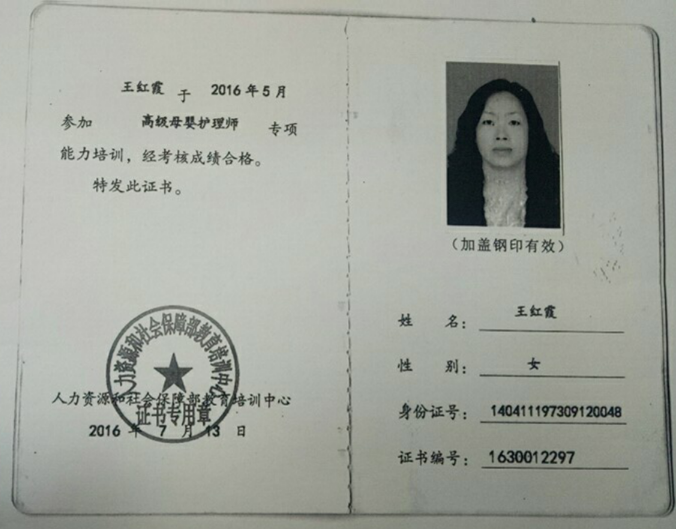 王红霞 于 2016年5月
参加 高级母婴护理师 专项
能力培训，经考核成绩合格。
特发此证书。
人力资源和社会保障部教育培训中心
证书专用章
人力资源和社会保障部教育培训中心
2016 年 7 月 13 日
（加盖钢印有效）
姓 名： 王红霞
性 别： 女
身份证号： 140411197309120048
证书编号： 1630012297